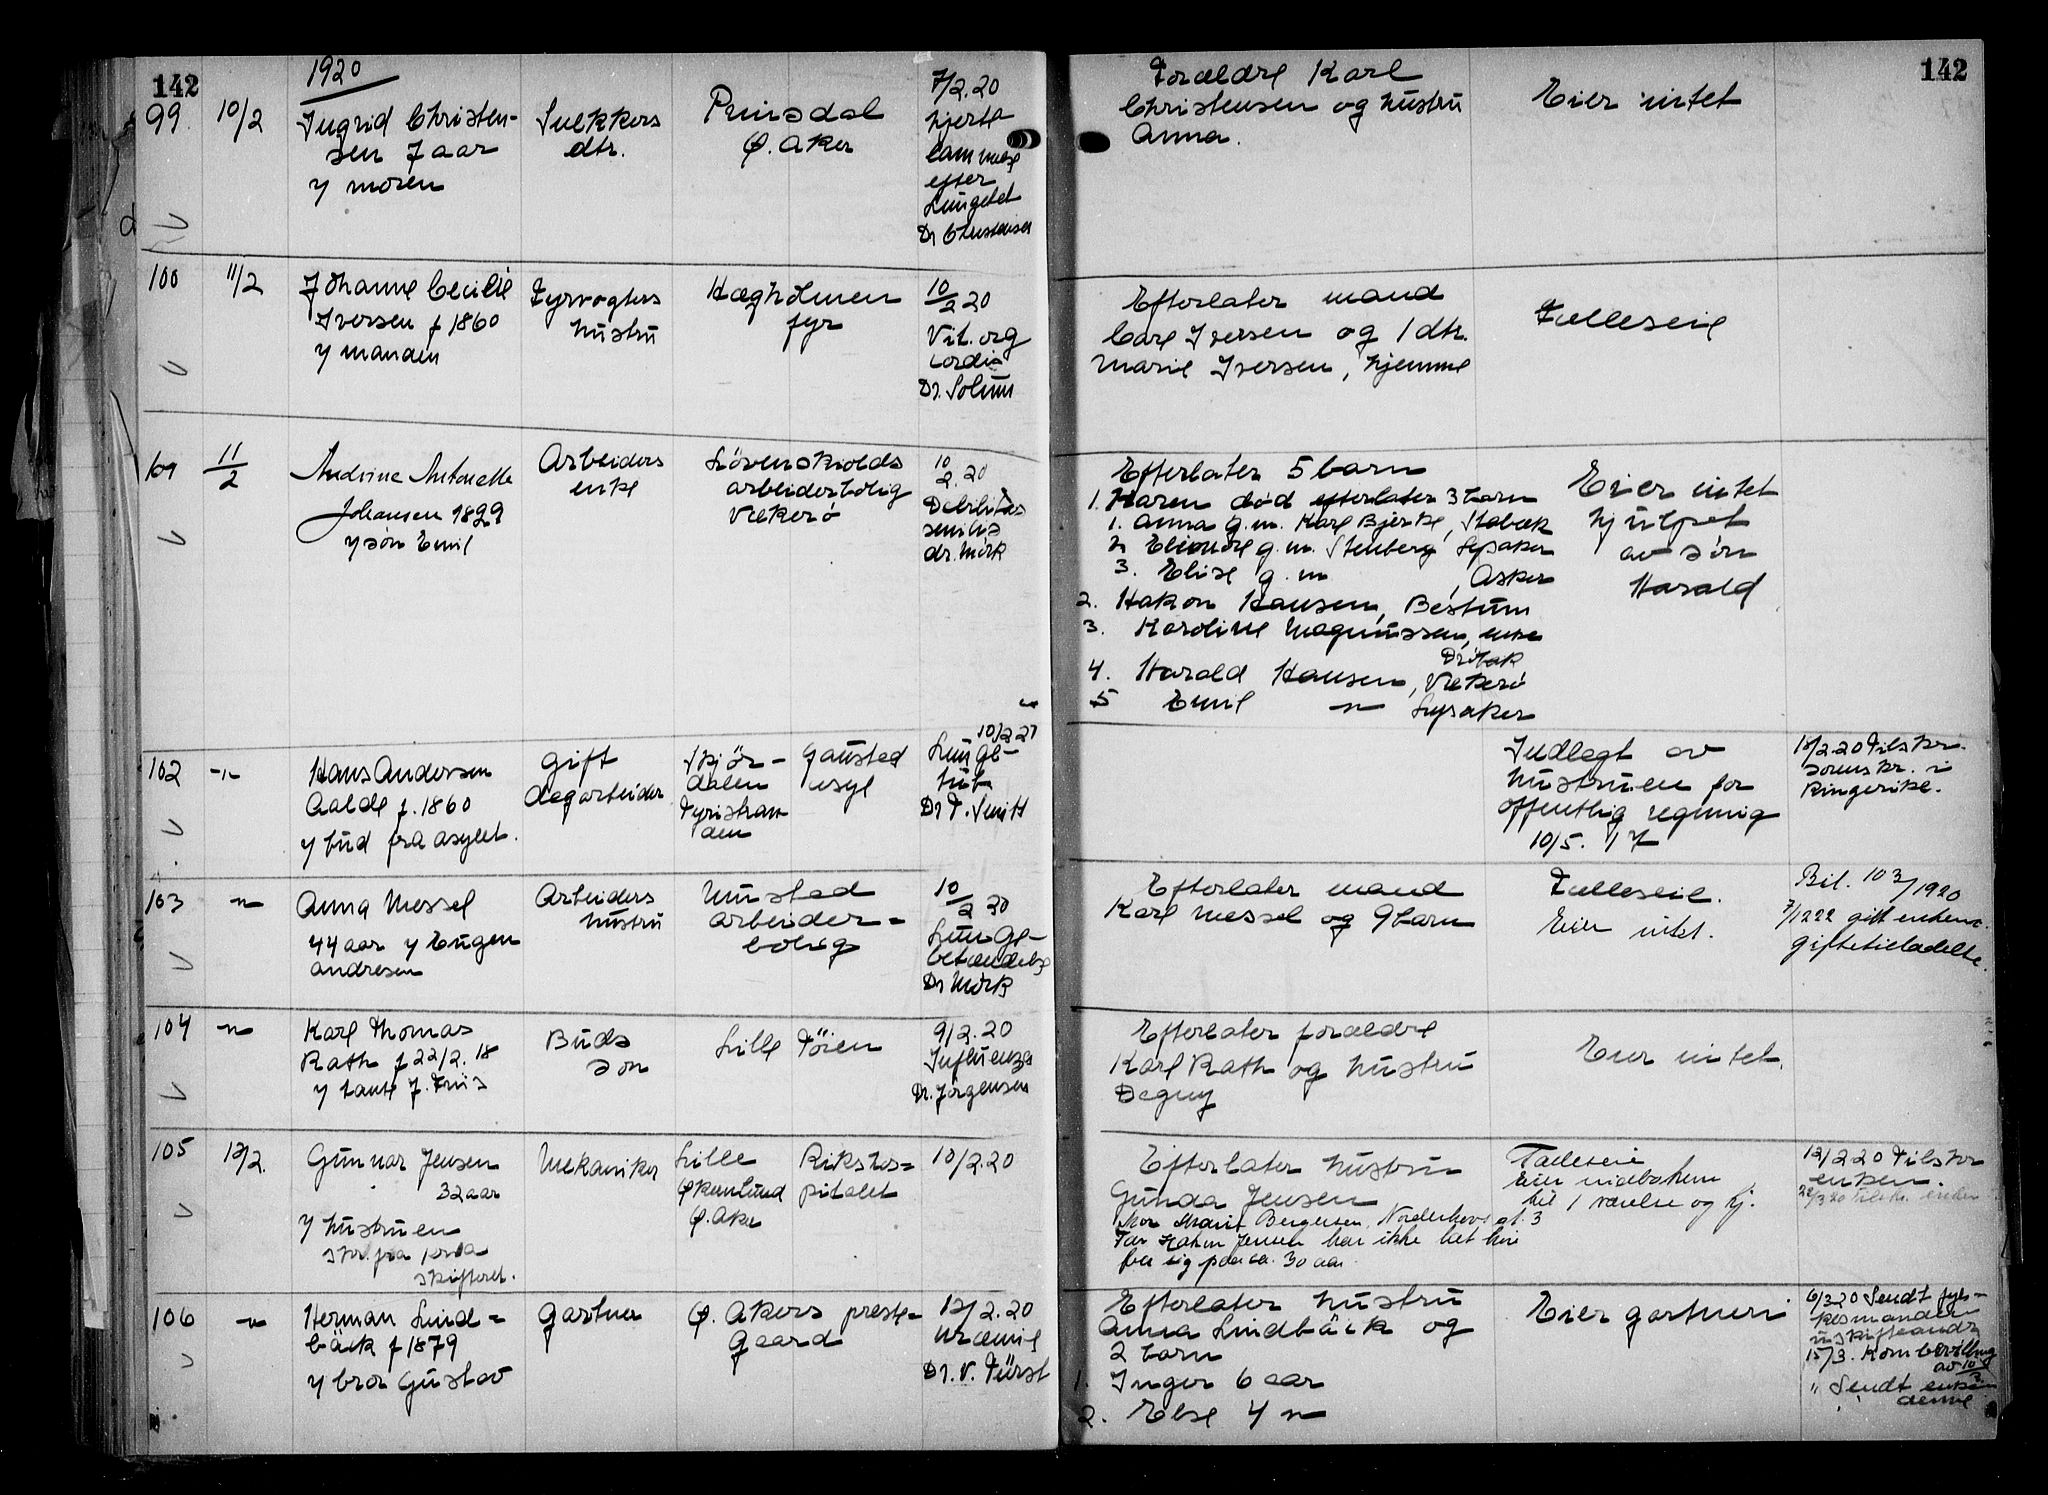 142
142
1920
99
10/2
Ingrid Christen-
sen 7 aar
y moren
Snekkers
dtr.
Prinsdal
Ø. Aker
7/2.20
hjerte
lammelse
efter
Lungebet
Dr Christensen
Forældre Karl
Christensen og hustru
Anna.
Eier intet
100
11/2
Johanne Cecilie
Iversen f 1860
y manden
Fyrvogters
hustru
Hægholmen
fyr
10/2 20
Vit. org
cordis
Dr. Solum
Efterlater mand
Carl Iversen og 1 dtr.
Marie Iversen, hjemme
Fælleseie
101
11/2
Andrine Antonette
Johansen 1829
y søn Emil
Arbeiders
enke
Løvenskiolds
arbeiderbolig
Vækerø
10/2.20
Debilitas
senilis
dr. Mørk
Efterlater 5 barn
1. Karen død efterlater 3 barn
1. Anna g.m. Karl Bjerke, Stabæk
2 Elionore g.m. Stenberg Lysaker
3. Elise g.m , Asker
2. Hakon Hansen, Bestum
3. Karoline Magnussen, enke
Drøbak
4. Harald Hansen, Vækerø
5 Emil -"- Lysaker
Eier intet
hjulpet
av søn
Harald
102
-"-
Hans Andersen
Aalde f. 1860
y bud fra asylet.
gift
dagarbeider
Skjør-
dalen
Fyristran
den
Gaustad
asyl
10/2 20
Lunge-
tub
Dr F. Smitt
Indlagt av
hustruen for
offentlig regning
10/5. 17
12/2.20 Tilskr.
sorenskr. i
Ringerike.
103
-"-
Anna Messel
44 aar y Eugen
Andresen
Arbeiders
hustru
Mustad
arbeider-
bolig
10/2 20
Lunge-
betændelse
Dr Mørk
Efterlater mand
Karl Messel og 9 barn
Fælleseie.
Eier intet.
Bil. 103/1920
7/12 22 gitt enkem.
giftetilladelse.
104
-"-
Karl Thomas
Rath f 22/2. 18
y tante J. Friis
Buds
søn
Lille Tøien
9/2.20
Influenza
Dr. Jørgensen
Efterlater forældre
Karl Rath og hustru
Dagny
Eier intet.
105
12/2.
Gunnar Jensen
32 aar
y hustruen
skifteret.
Mekaniker
Lille
Ø. Aker
Rikshos-
pitalet
10/2.20
Efterlater hustru
Gunda Jensen
Mor Marit Bergersen, Norderhovs gt. 3
Far Hakon Jensen har ikke latt høre
fra sig paa ca. 30 aar.
Fælleseie
Eier indbo
til 1 værelse og kj.
12/2 20 Tilskr
enken.
22/3 20 tilskr. enken
106
-"-
Herman Lind-
bäck f 1879
y bror Gustav
Gartner
Ø. Akers preste-
gaard
12/2.20
Uræmie
Dr. V. Fürst
Efterlater hustru
Anna Lindbäck og
2 barn
1. Inger 6 aar
2. Else 4 -"-
Eier gartneri
6/3 20 Sendt fyl-
kesmanden
15/3. Kom bevilling
av 10/3.
" Sendt enken
denne